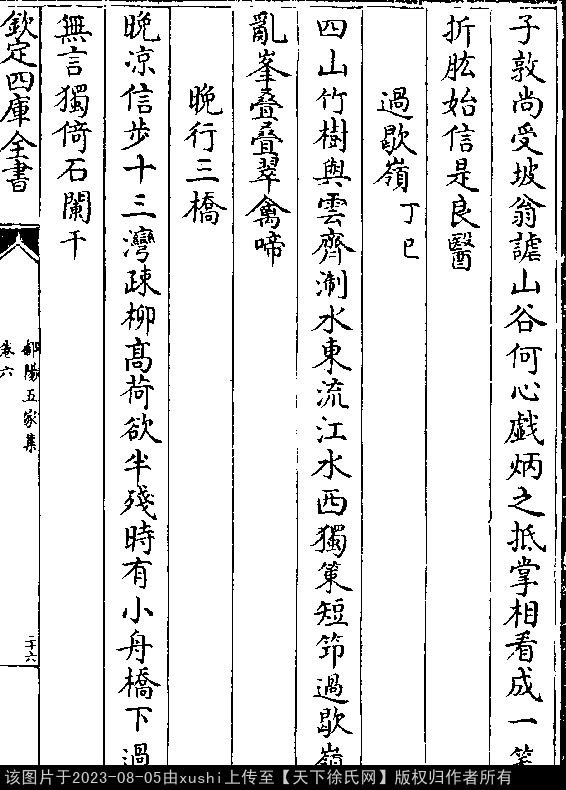 子敦尚受坡翁謔山谷何心戲炳之抵掌相看成一笑
折肱始信是良醫
過歇嶺丁巳
四山竹樹與雲齊淛水東流江水西獨策短筇過歇嶺
亂峯疊疊翠禽啼
晚行三橋
晚凉信步十三灣疎柳髙荷欲半殘時有小舟橋下過
無言獨倚石闌干
欽定四庫全書
鄱陽五家集
卷六
二十六
该图片于2023-08-05由xushi上传至【天下徐氏网】版权归作者所有